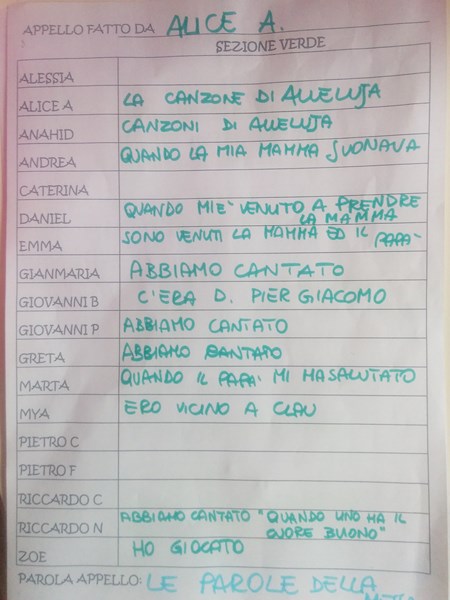 APPELLO FATTO DA ALICE A.
SEZIONE VERDE
ALESSIA
ALICE A LA CANZONE DI ALLELUJA
ANAHID CANZONI DI ALLELUJA
ANDREA QUANDO LA MIA MAMMA SUONAVA
CATERINA
DANIEL QUANDO MIE' VENUTO A PRENDRE
LA MAMMA
EMMA SONO VENUTI LA MAMMA ED IL PAPA'
GIANMARIA ABBIAMO CANTATO
GIOVANNI B C'ERA D. PIER GIACOMO
GIOVANNI P ABBIAMO CANTATO
GRETA ABBIAMO CANTATO
MARTA QUANDO IL PAPA' MI HA SALUTATO
MYA ERO VICINO A CLAU
PIETRO C
PIETRO F
RICCARDO C
RICCARDO N ABBIAMO CANTATO "QUANDO UNO HA IL
CUORE BUONO"
ZOE HO GIOCATO
PAROLA APPELLO: LE PAROLE DELLA